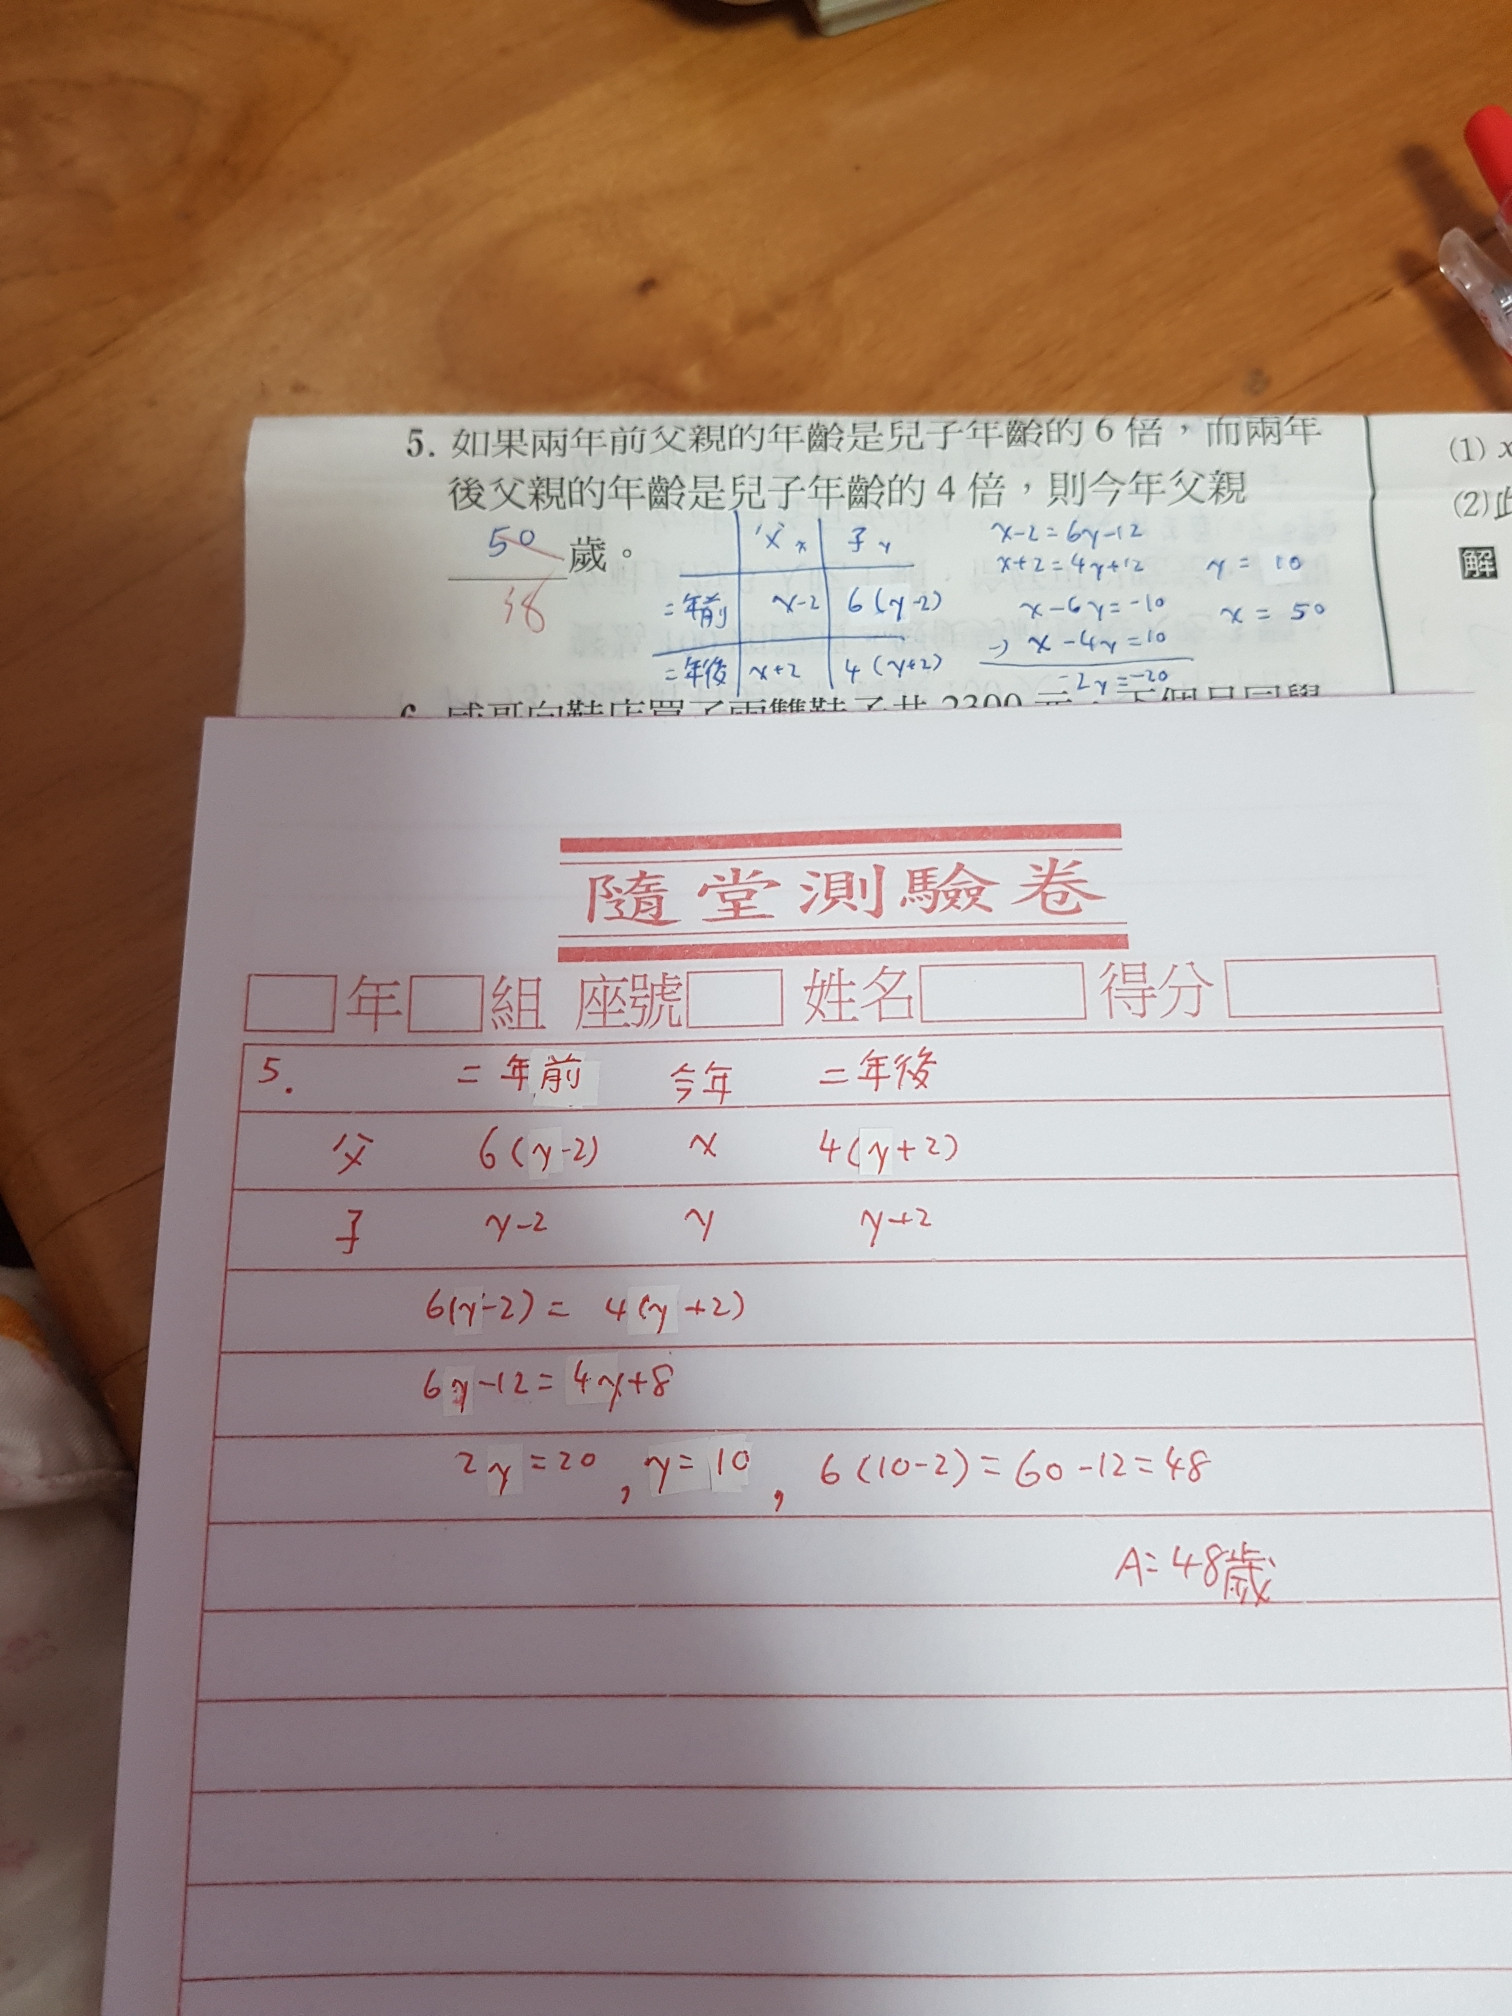 5. 如果兩年前父親的年齡是兒子年齡的6倍，而兩年
後父親的年齡是兒子年齡的4倍，則今年父親
50 歲。
38
父x 子y
二年前 x-2 6(y-2)
二年後 x+2 4(y+2)
x-2=6y-12
x+2=4y+12 y=10
x-6y=-10 x=50
-) x-4y=10
-2y=-20
(1) x
(2)此
解
隨堂測驗卷
年 組 座號 姓名 得分
5. 二年前 今年 二年後
父 6(y-2) x 4(y+2)
子 y-2 y y+2
6(y-2)= 4(y+2)
6y-12=4y+8
2y=20, y=10, 6(10-2)=60-12=48
A=48歲